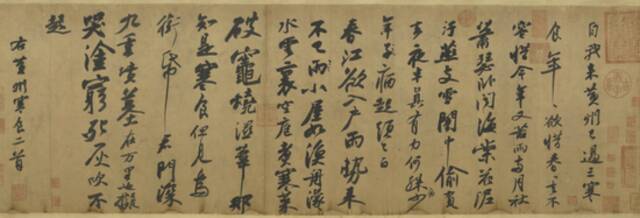 自我來黃州已過三寒
食年年欲惜春春去不
容惜今年又苦雨兩月秋
蕭瑟臥聞海棠花泥
汙燕支雪闇中偷負
去夜半真有力何殊少
年子病起須已白
春江欲入戶雨勢來
不已雨小屋如漁舟濛濛
水雲裏空庖煮寒菜
破竈燒濕葦那
知是寒食但見烏
銜帋君門深
九重墳墓在万里也擬
哭塗窮死灰吹不
起
右黃州寒食二首